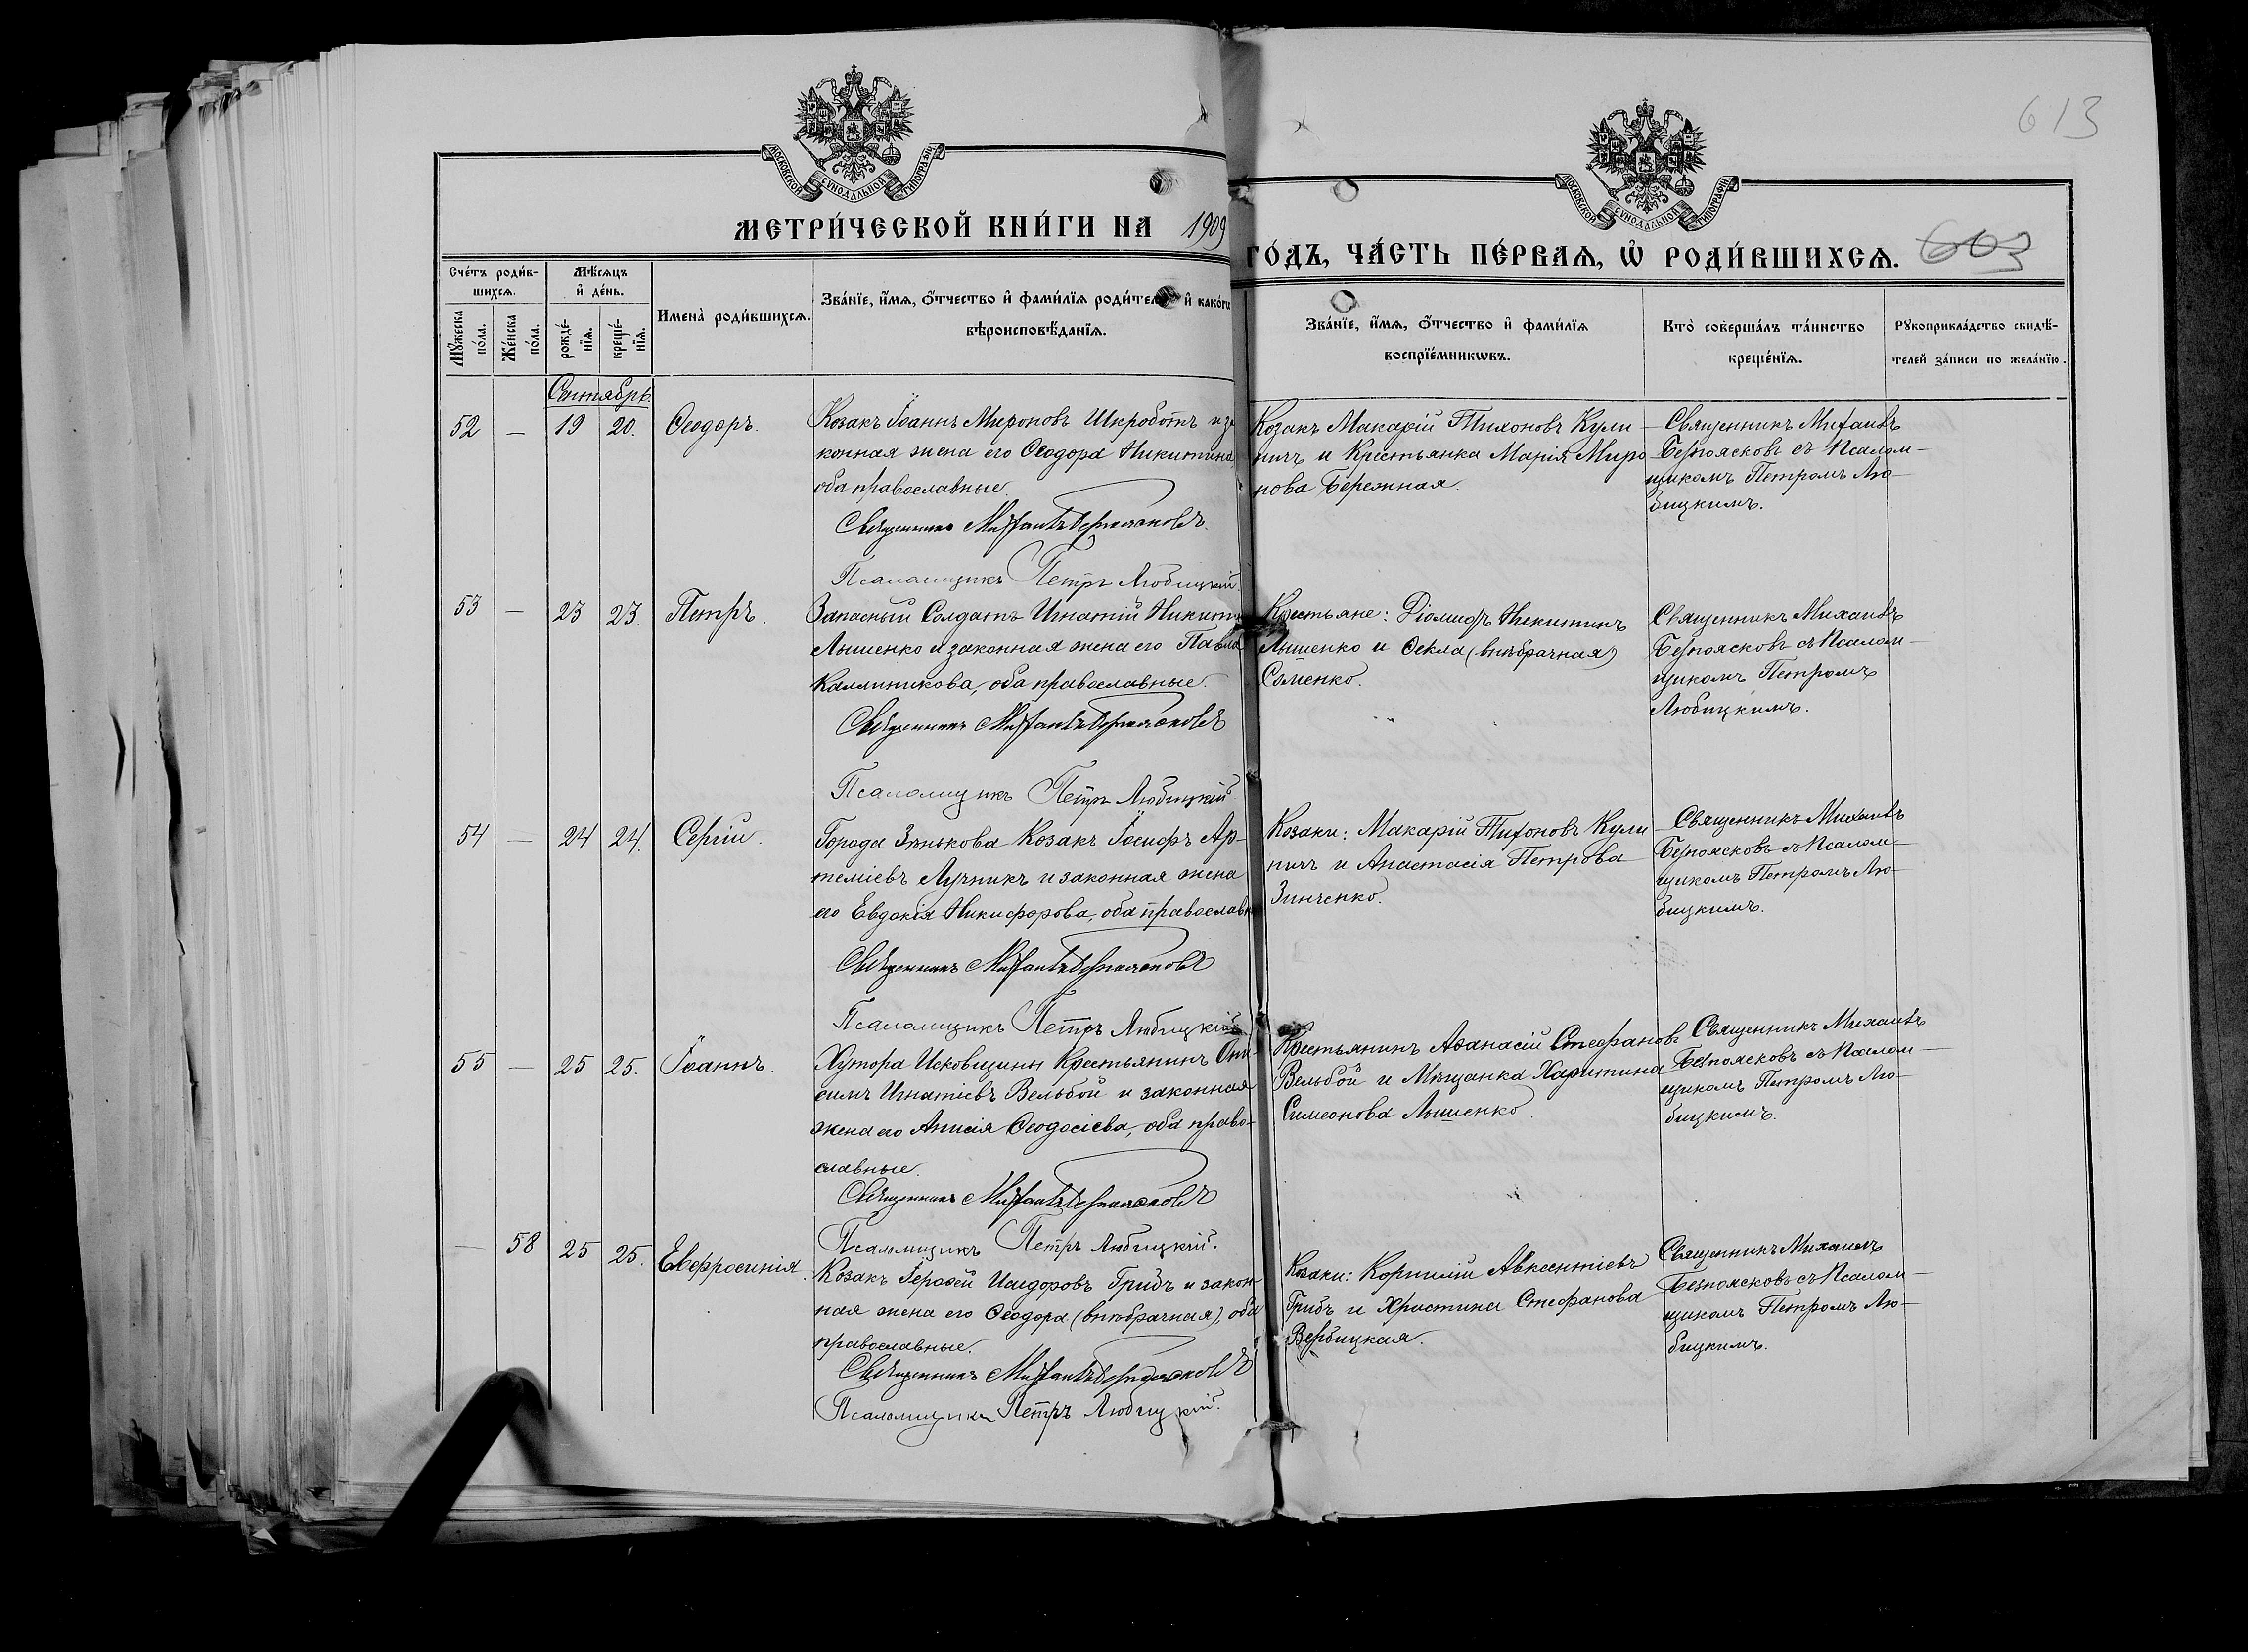 613
МОСКОВСКОЙ СѴНОДАЛЬНОЙ ТИПОГРАФІИ
МОСКОВСКОЙ СѴНОДАЛЬНОЙ ТИПОГРАФІИ
МЕТРИ́ЧЕСКОЙ КНИ́ГИ НА 1909
ГО́ДЪ, ЧА́СТЬ ПЕ́РВАѦ, Ѡ҆ РОДИ́ВШИХСѦ.
603
Сче́тъ роди́в-
шихсѧ.
Мꙋ́жеска по́ла.
Же́нска по́ла.
Мѣ́сѧцъ
и҆ де́нь.
рожде́-нїѧ.
креще́-нїѧ.
Имена̀ роди́вшихсѧ.
Зва́нїе, и҆́мѧ, ѻ҆́тчество и҆ фами́лїѧ роди́тел и҆ како́гѡ
вѣроисповѣ́данїѧ.
Зва́нїе, и҆́мѧ, ѻ҆́тчество и҆ фами́лїѧ
воспрїе́мникѡвъ.
Кто̀ соверша́лъ та́инство
креще́нїѧ.
Рꙋкоприкла́дство свидѣ́-
телей за́писи по жела́нїю.
Сентябрь.
52 — 19 20. Ѳеодоръ.
Козакъ Іоаннъ Мироновъ Шкроботъ и за
конная жена его Ѳеодора Никитина
оба православные.
Священникъ Михаилъ Безпоясковъ.
Псаломщикъ Петръ Любицкій.
Козакъ Макарій Тихоновъ Кули
ничъ и Крестьянка Марія Миро
нова Бережная.
Священникъ Михаилъ
Безпоясковъ съ Псалом-
щикомъ Петромъ Лю-
бицкимъ.
53 — 23 23. Петръ.
Запасный Солдатъ Игнатій Никити
Лышенко и законная жена его Павла
Каллиникова, оба православные.
Священникъ Михаилъ Безпоясковъ
Псаломщикъ Петръ Любицкій.
Крестьяне: Діомидъ Никитинъ
Лышенко и Ѳекла (внѣбрачная)
Сѣменко.
Священникъ Михаилъ
Безпоясковъ съ Псалом-
щикомъ Петромъ
Любицкимъ.
54 — 24 24. Сергій.
Города Зѣнькова Козакъ Іосифъ Ар-
теміевъ Лучникъ и законная жена
его Евдокія Никифорова, оба православн
Священникъ Михаилъ Безпоясковъ
Псаломщикъ Петръ Любицкій
Козаки: Макарій Тихоновъ Кули
ничъ и Анастасія Петрова
Зинченко.
Священникъ Михаилъ
Безпоясковъ съ Псалом-
щикомъ Петромъ Лю-
бицкимъ.
55 — 25 25. Іоаннъ.
Хутора Исковщины Крестьянинъ Они-
симъ Игнатіевъ Вельбой и законная
жена его Анисія Ѳеодосіева, оба право-
славные.
Священникъ Михаилъ Безпоясковъ
Псаломщикъ Петръ Любицкій.
Крестьянинъ Аѳанасій Стефановъ
Вельбой и Мѣщанка Харитина
Симеонова Лышенко.
Священникъ Михаилъ
Безпоясковъ съ Псалом-
щикомъ Петромъ Лю-
бицкимъ.
— 58 25 25. Евфросинія.
Козакъ Іероѳей Исидоровъ Грибъ и закон-
ная жена его Ѳеодора (внѣбрачная), оба
православные.
Священникъ Михаилъ Безпоясковъ
Псаломщикъ Петръ Любицкій.
Козаки: Корнилій Авксентіевъ
Грибъ и Христина Стефанова
Вербицкая.
Священникъ Михаилъ
Безпоясковъ съ Псалом-
щикомъ Петромъ Лю-
бицкимъ.